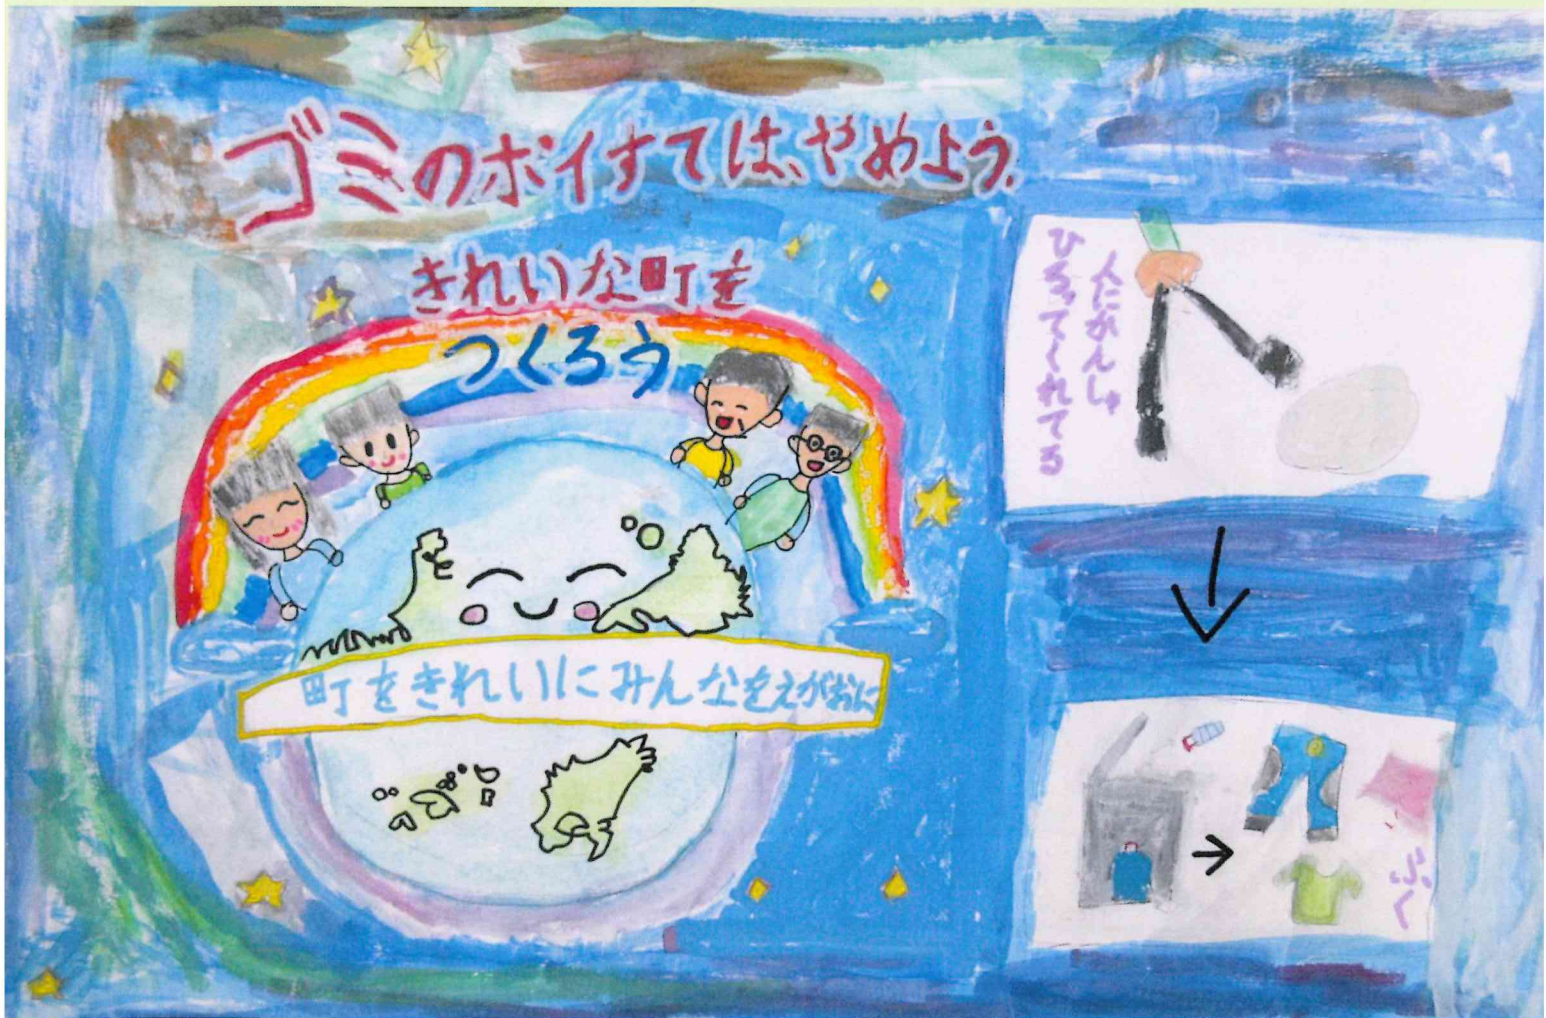 ゴミのポイすては、やめよう.
きれいな町を
つくろう
町をきれいにみんなをえがおに
人にかんしゃ
ひろってくれてる
ふく